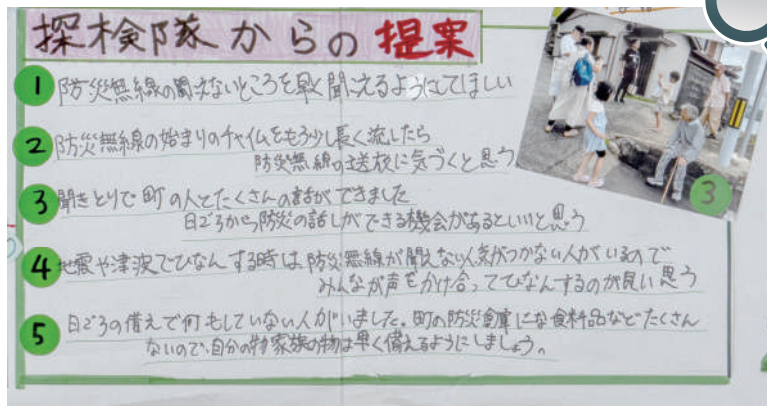 探検隊からの提案
1 防災無線の聞えないところを早く聞こえるようにしてほしい
2 防災無線の始まりのチャイムをもう少し長く流したら
防災無線の送放に気づくと思う
3 聞きとりで町の人とたくさんの話ができました
日ごろから防災の話しができる機会があるといいと思う
4 地震や津波でひなんする時は防災無線が聞えない人気がつかない人がいるので
みんなが声をかけ合ってひなんするのが良い思う
5 日ごろの備えで何もしていない人がいました。町の防災倉庫には食料品などたくさん
ないので、自分の物家族の物は早く備えるようにしましょう。
3